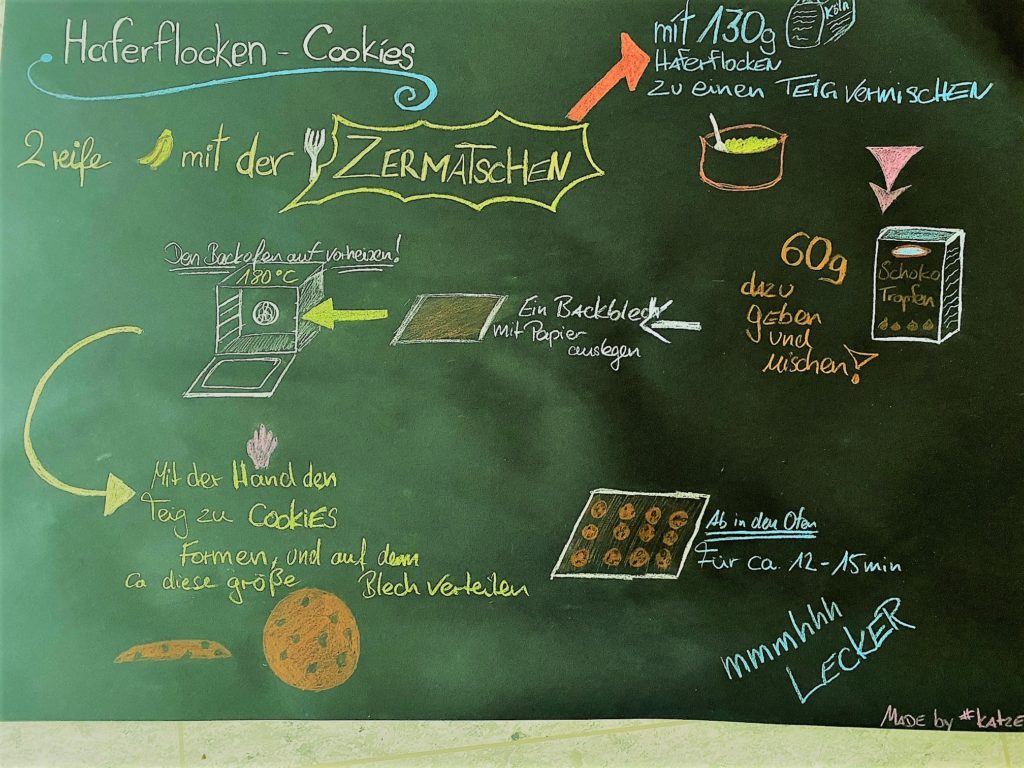 Haferflocken - Cookies
2 reife mit der ZERMATSCHEN
mit 130g
Köln
HAFERFLOCKEN
zu einen TEIG VERMISCHEN
60g
dazu
geben
und
Mischen!
Schoko
Tropfen
Ein Backblech
mit Papier
auslegen
Den Backofen auf vorheizen!
180°C
Mit der Hand den
Teig zu COOKIES
Formen, und auf dem
Blech verteilen
Ca diese größe
Ab in den Ofen
Für ca. 12-15min
mmmhhh
LECKER
MADE by #KATZE